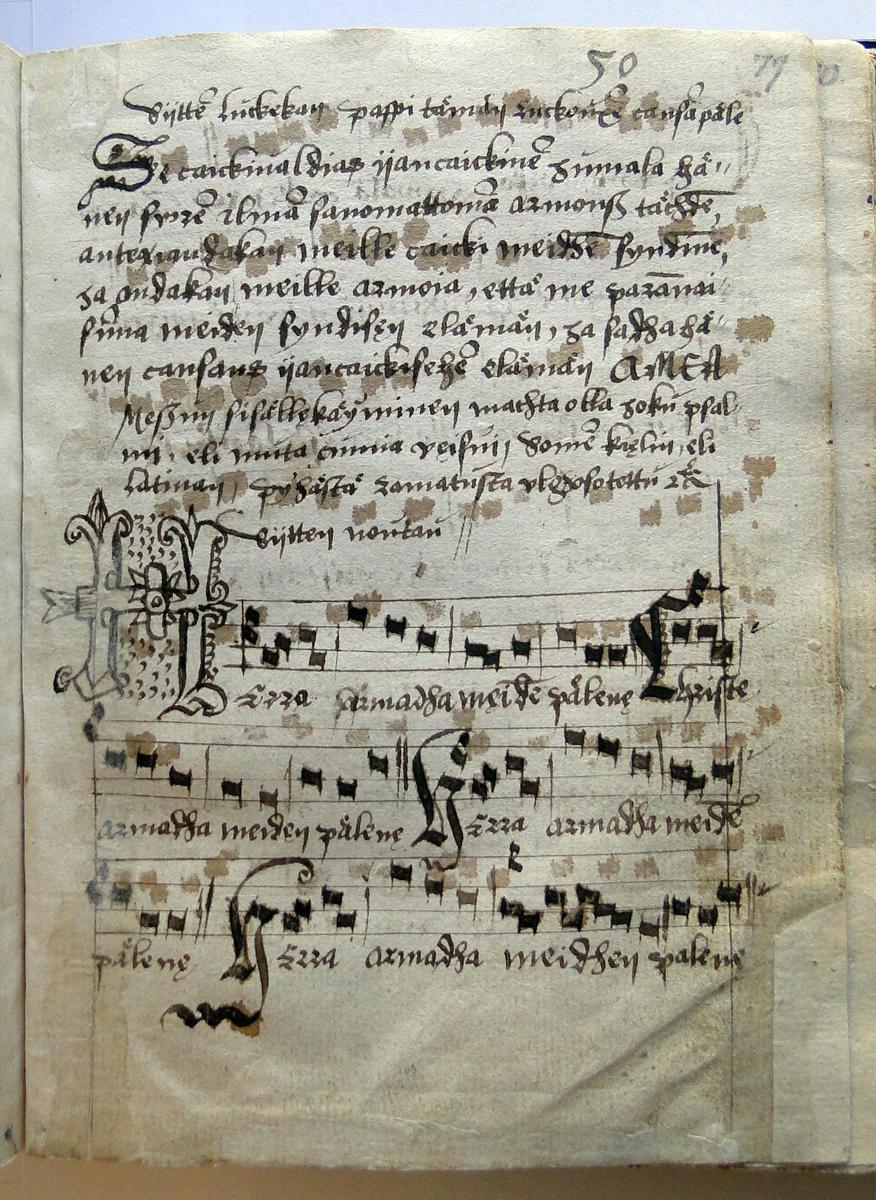 50 77
Sijttē luckekan pappi tämän luckouxē cansā päle
Se caickiualdias ijancaickinē Jumala hä-
nen swrē ilmā sanomattomā armonß tächdē,
antexiandakan meille caicki meidhē syndinē,
ja andakan meille armoia, että me parānai-
sima meiden syndisen elämän, ja sadha hä-
nen cansans ijancaickisehē elämän AMEN
Meßun sisällekäyminen machta olla joku psal-
mi, eli muta cunnia veisun, Somē kielin, eli
latinan, pyhästä ramatusta vlgosotettu
Sijtten noutau
HErra armadha meidē pälenę Christe
armadha meiden pälenę HErra armadha meidē
pälenę HErra armadha meidhen palenę